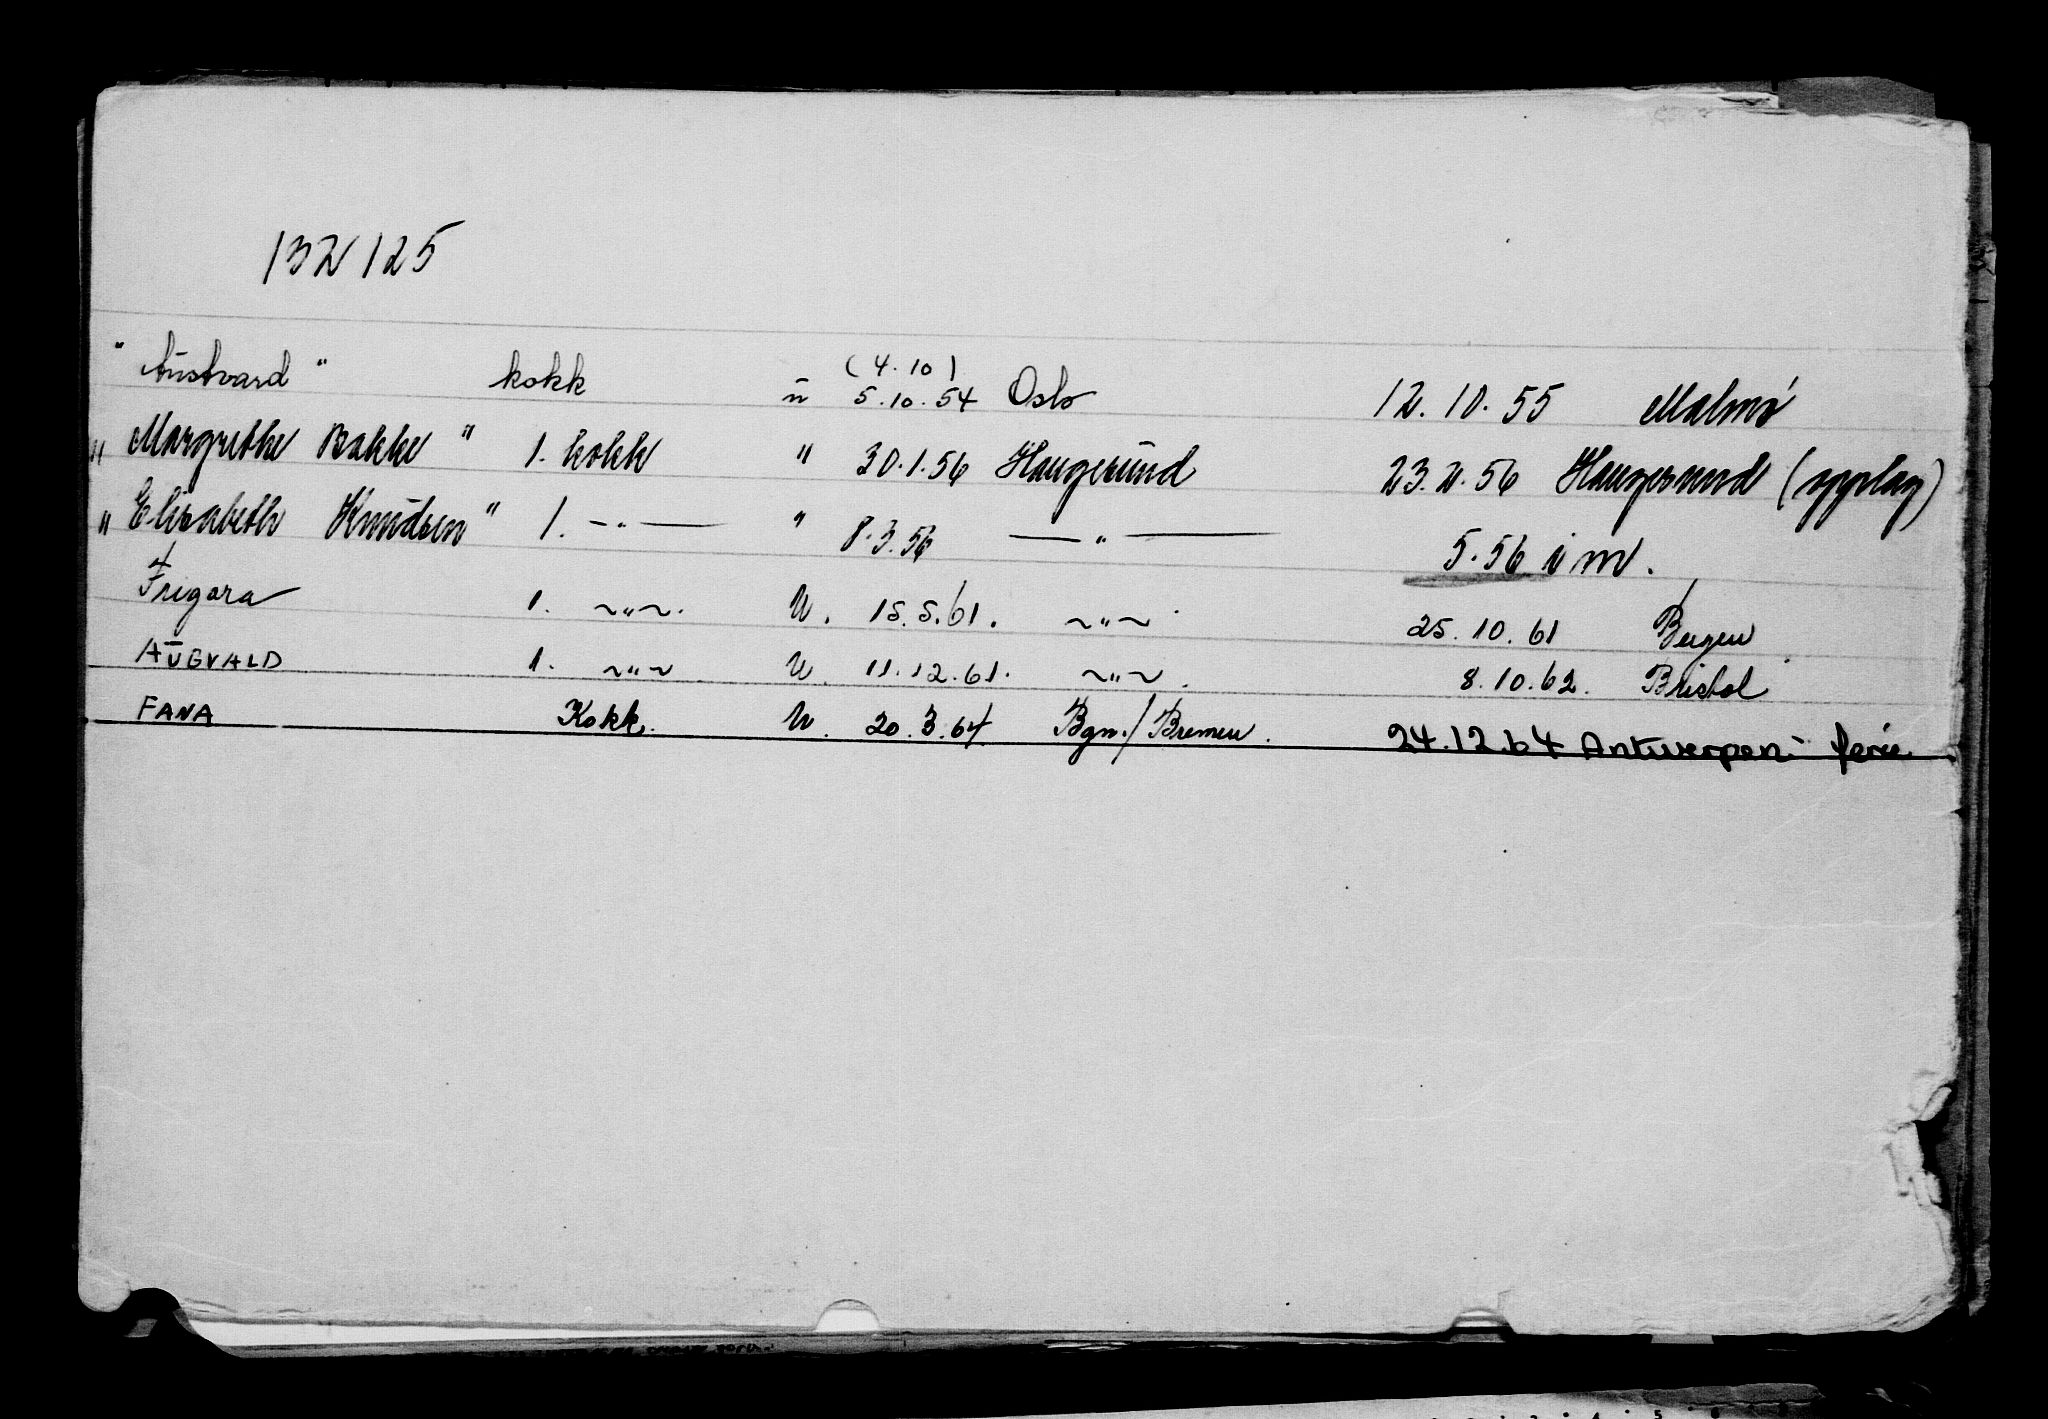 132125
"Austvard" kokk u (4.10) 5.10.54 Oslo 12.10.55 Malmö
"Margrethe Bakke" 1. kokk " 30.1.56 Haugesund 23.2.56 Haugesund (opplag)
"Elisabeth Knudsen" 1. —"— " 8.3.56 —"— 5.56 i m.
Frigora 1. ~"~. U. 15.5.61. ~"~. 25.10.61 Bergen
AUGVALD 1. ~"~. U. 11.12.61. ~"~. 8.10.62. Bristol
FANA Kokk. U. 20.3.64 Bgn./Bremen. 24.12.64 Antwerpen - ferie.